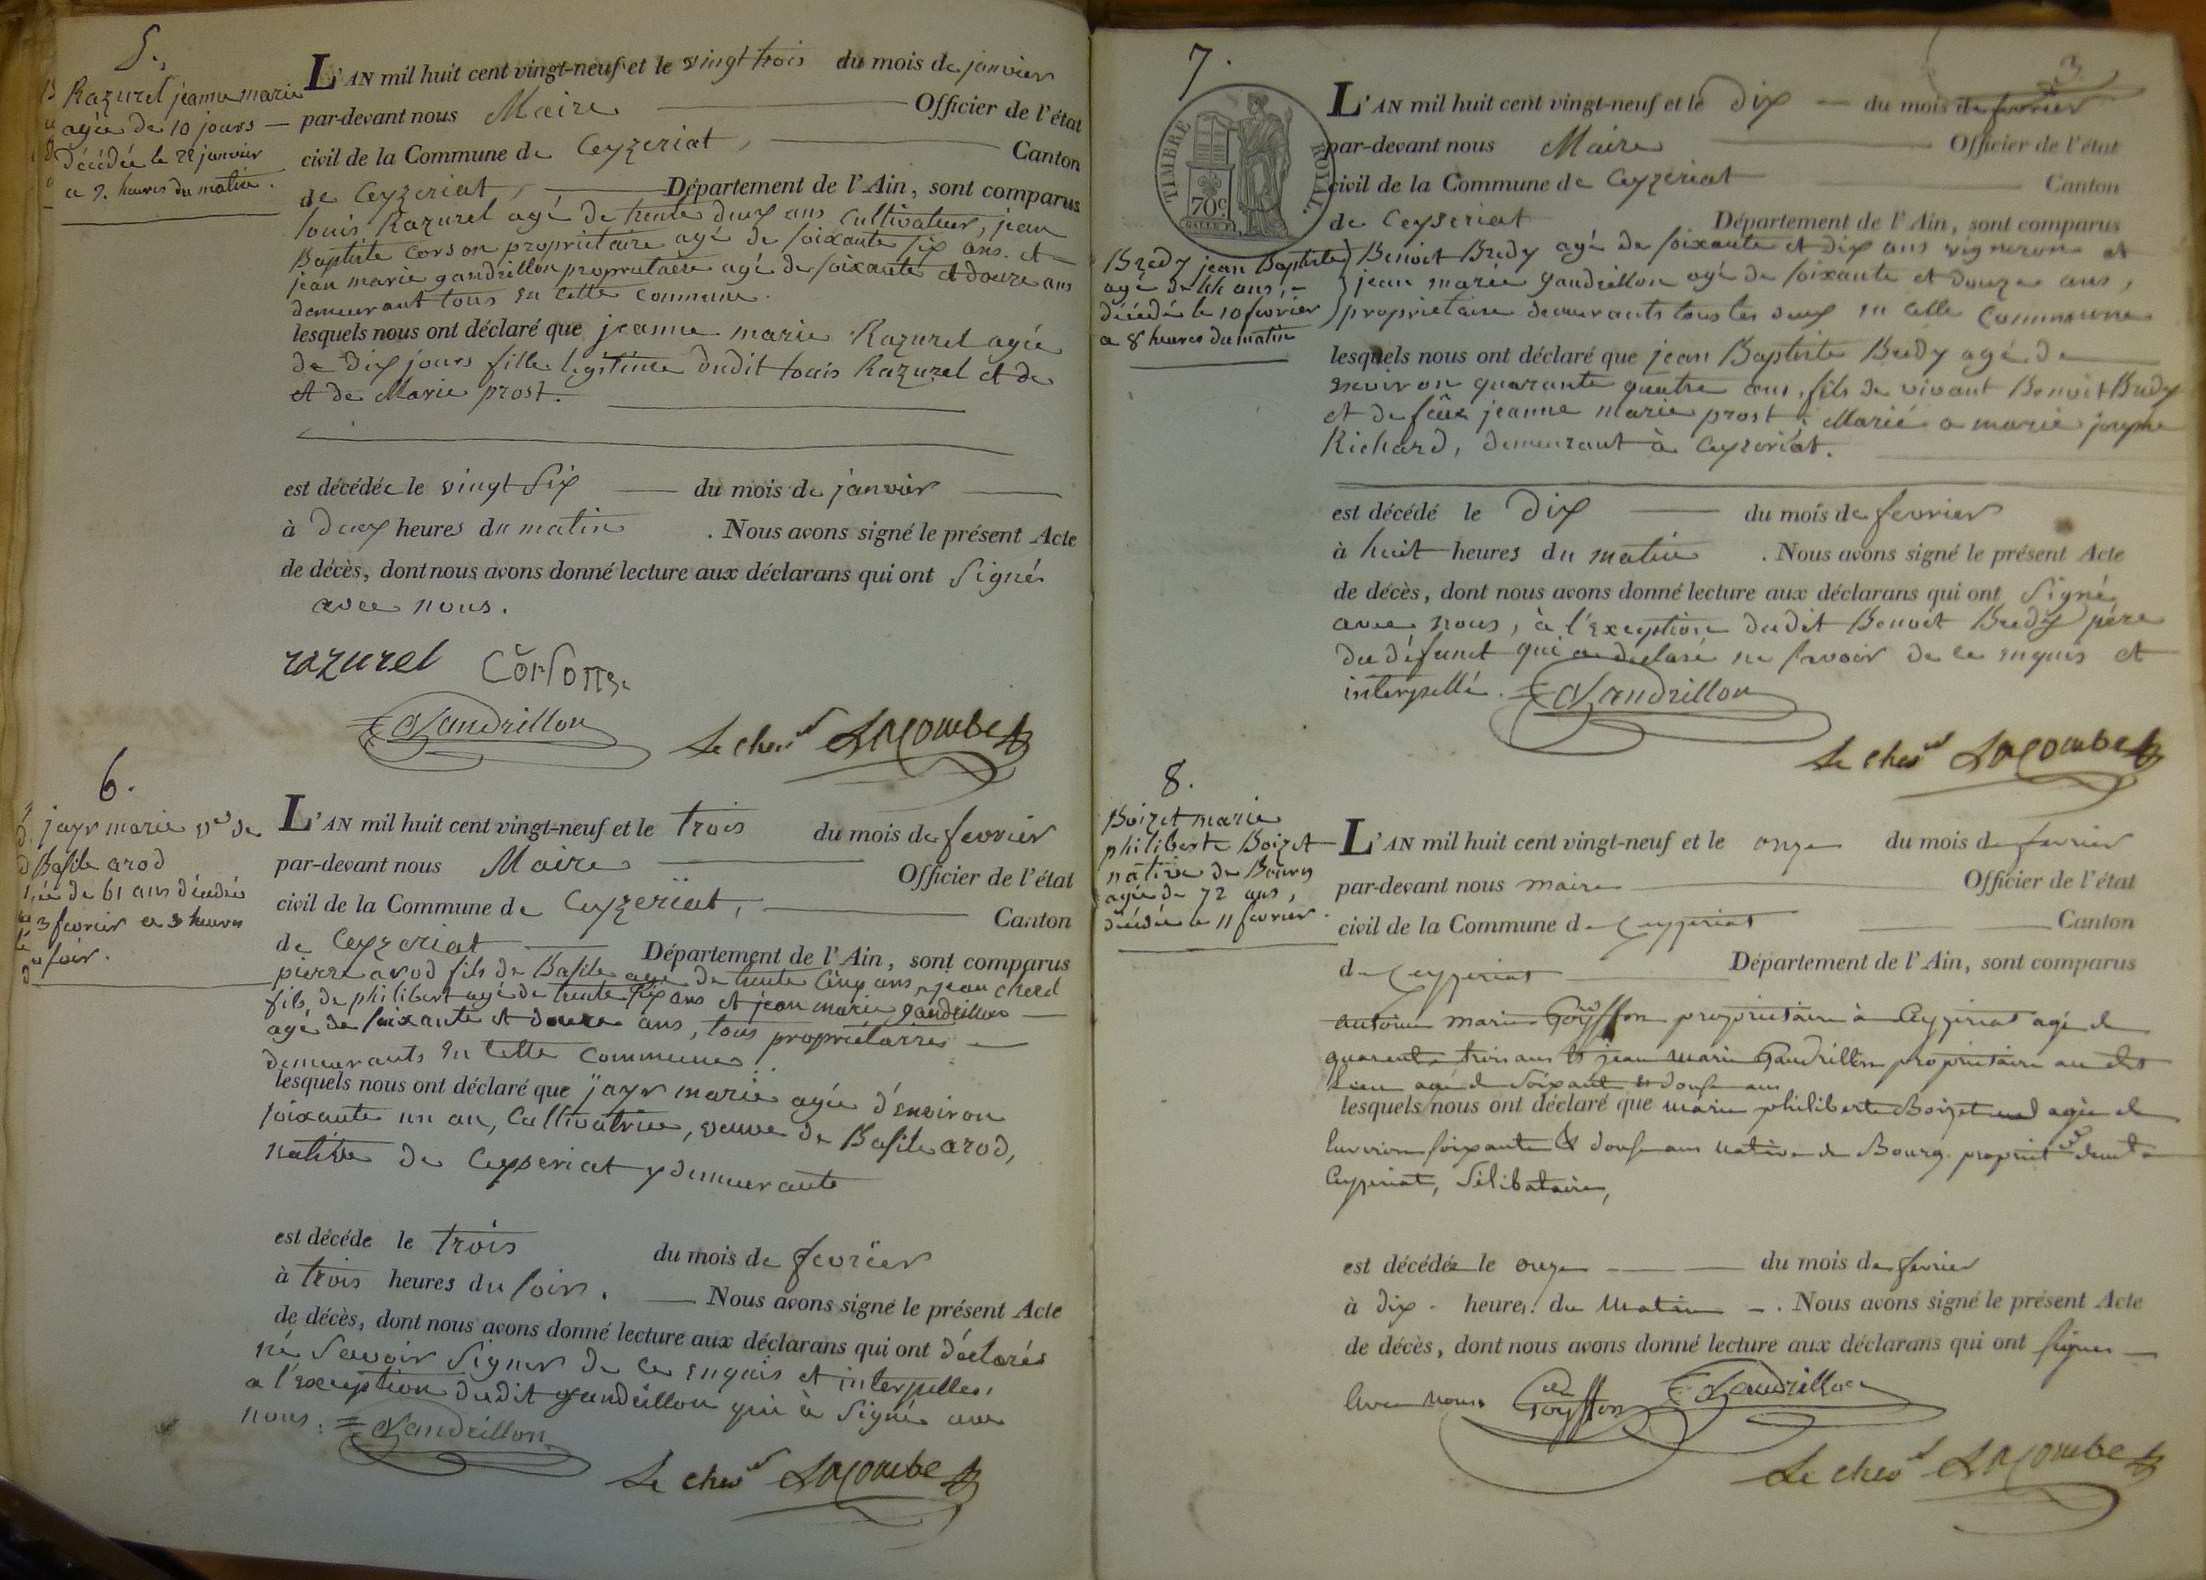 5.
Razurel jeanne marie
agée de 10 jours —
décédée le 22 janvier
a 2. heures du matin.
L'AN mil huit cent vingt-neuf et le vingt trois du mois de janvier
par-devant nous Maire Officier de l'état
civil de la Commune de Ceyzeriat, Canton
de Ceyzeriat, Département de l'Ain, sont comparus
louis Razurel agé de trente deux ans cultivateur, jean
Baptiste Corson propriétaire agé de soixante six ans et
jean marie gaudrillon propriétaire agé de soixante et douze ans
demeurant tous en cette commune.
lesquels nous ont déclaré que jeanne marie Razurel agée
de dix jours fille légitime dudit louis Razurel et de
et de Marie prost.
est décédée le vingt six du mois de janvier
à deux heures du matin . Nous avons signé le présent Acte
de décès, dont nous avons donné lecture aux déclarans qui ont signé
avec nous.
razurel Corsonn
Gaudrillon
Le chev Lacombe
6.
jayr marie ve de
Basile arod
agée de 61 ans décédée
3 fevrier a 3 heures
du soir.
L'AN mil huit cent vingt-neuf et le trois du mois de fevrier
par-devant nous Maire Officier de l'état
civil de la Commune de Ceyzeriat, Canton
de Ceyzeriat Département de l'Ain, sont comparus
pierre arod fils de Basile agé de trente cinq ans, jean
fils de philibert agé de trente six ans et jean marie gaudrillon
agé de soixante et douze ans, tous propriétaires
demeurants en cette commune.
lesquels nous ont déclaré que jayr marie agée d'environ
soixante un an, Cultivatrice, veuve de Basile arod,
native de Ceyseriat y demeurante
est décéde le trois du mois de fevrier
à trois heures du soir. Nous avons signé le présent Acte
de décès, dont nous avons donné lecture aux déclarans qui ont déclarés
ne Savoir Signer de ce enquis et interpellés,
a l'exception dudit gaudrillon qui a Signé avec
nous. Gaudrillon
Le chev Lacombe
7.
3
TIMBRE ROYAL.
70c
Bredy jean Baptiste
agé de 44 ans,
décédé le 10 fevrier
a 8 heures du matin
L'AN mil huit cent vingt-neuf et le Dix du mois de fevrier
par-devant nous Maire Officier de l'état
civil de la Commune de Ceyzeriat Canton
de Ceyseriat Département de l'Ain, sont comparus
Benoit Bredy agé de soixante et dix ans vigneron et
jean marie gaudrillon agé de soixante et douze ans,
propriétaire demeurants tous les deux en cette Commune
lesquels nous ont déclaré que jean Baptiste Bredy agé de
environ quarante quatre ans, fils de vivant Benoit Bredy
et de feüe jeanne marie prost, Marié a marie
Richard, demeurant à Ceyzeriat.
est décédé le Dix du mois de fevrier
à huit heures du matin . Nous avons signé le présent Acte
de décès, dont nous avons donné lecture aux déclarans qui ont Signé
avec nous, à l'exception dudit Benoit Bredy père
du défunct qui a declaré ne savoir de ce enquis et
interpellé. Gaudrillon
Le chev Lacombe
8.
Boizet marie
philiberte Boizet
native de Bourg
agée de 72 ans,
décédée le 11 fevrier.
L'AN mil huit cent vingt-neuf et le onze du mois de fevrier
par-devant nous maire Officier de l'état
civil de la Commune de Ceyzeriat Canton
de Ceyzeriat Département de l'Ain, sont comparus
antoine marie Goÿffon propriétaire à Ceyzeriat agé de
quarente trois ans & jean marie Gaudrillon propriétaire au dit
Lieu agé de soixante et douse ans
lesquels nous ont déclaré que marie philiberte Boizet agée de
Environ soixante & douse ans native de Bourg propriet demt a
Ceyzeriat, Sélibataire,
est décédée le onze du mois de fevrier
à dix heures du Matin . Nous avons signé le présent Acte
de décès, dont nous avons donné lecture aux déclarans qui ont signés
avec nous. Goÿffon Gaudrillon
Le chev Lacombe